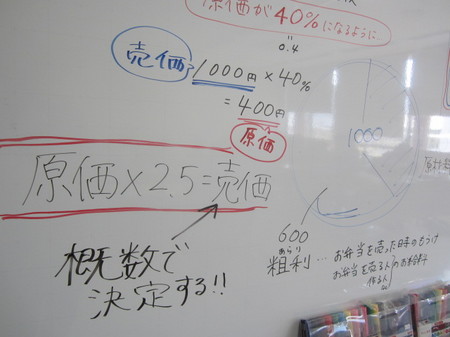 原価が40%になるように…
0.4
売価 1000円×40%
=400円
原価
1000
原価×2.5=売価
概数で
決定する!!
600
あらり
粗利…お弁当を売った時のもうけ
お弁当を売る人のお給料
作る人